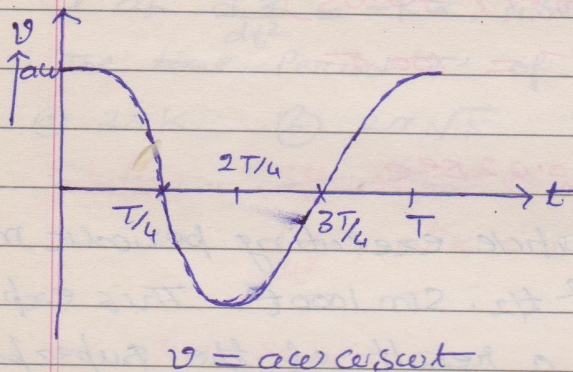 v
aω
2T/4
t
T/4
3T/4
T
v = aω cosωt